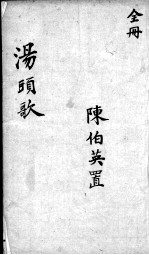 全冊
陳伯英置
湯頭歌